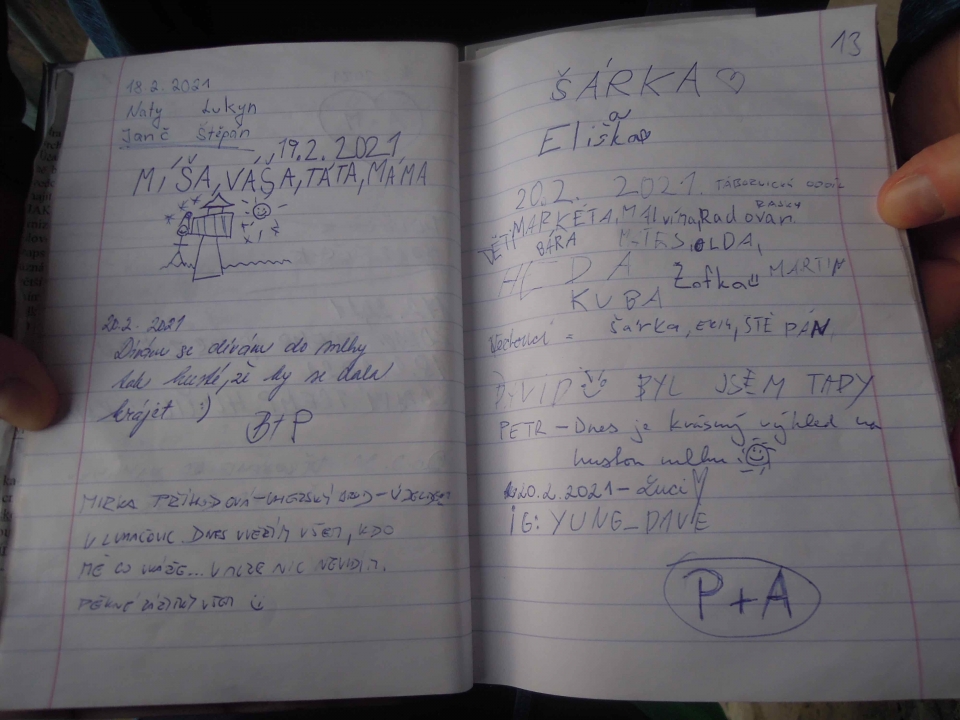 18.2.2021
Naty Lukyn
Janč Štěpán
19.2.2021
MÍŠA, VAŠA, TÁTA, MÁMA
20.2. 2021
Dívám se dívám do mlhy
tak husté, že by se dala
krájet :)
B+P
MIRKA
DNES VĚŽÍM VŠEM, KDO
MĚ CO UKÁŽE... V MLZE NIC NEVIDIM.
PĚKNÉ ZÁŽITKY VŠEM
13
ŠÁRKA
Eliška
20.2. 2021. TÁBORNICKÝ ODDÍL
DĚTI MARKÉTA, MALvína, Radovan
BÁRA OLDA,
Žofka MARTIN
KUBA
Vedoucí = Šárka, ŠTĚPÁN,
DAVID BYL JSEM TADY
PETR - Dnes je krásný výhled na
hustou mlhu
20.2.2021 - Luci
IG: YUNG_DAVE
P+A